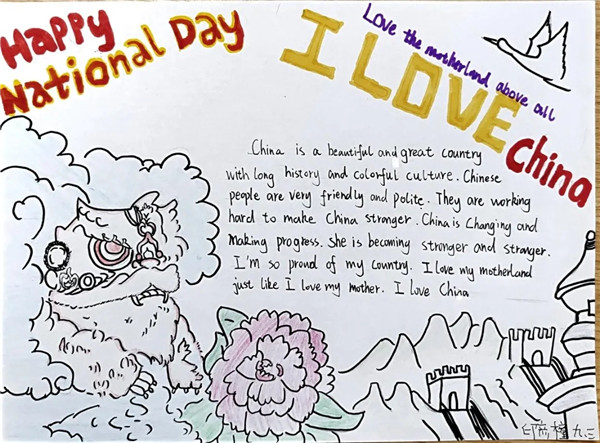 Happy
National Day
Love the motherland above all
I LOVE
China
China is a beautiful and great country
with long history and colorful culture. Chinese
people are very friendly and polite. They are working
hard to make China stronger. China is Changing and
making progress. She is becoming stronger and stronger.
I'm so proud of my country. I love my motherland
just like I love my mother. I love China
九.三